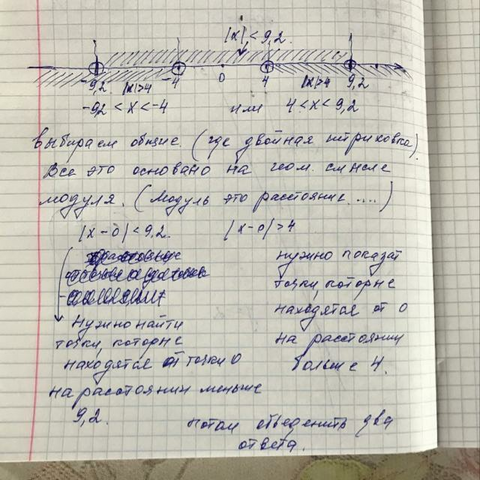 |x| < 9,2.
-9,2 |x|>4 -4 0 4 |x|>4 9,2
-9,2 < x < -4 или 4 < x < 9,2
выбираем общие (где двойная штриховка).
Все это основано на геом. смысле
модуля. (Модуль это расстояние ....)
|x-0| < 9,2. |x-0| > 4
Нужно найти
точки, которые
находятся от точки 0
на расстоянии меньше
9,2.
нужно показат
точки, которые
находятся от 0
на расстоянии
больше 4.
потом объединить два
ответа.